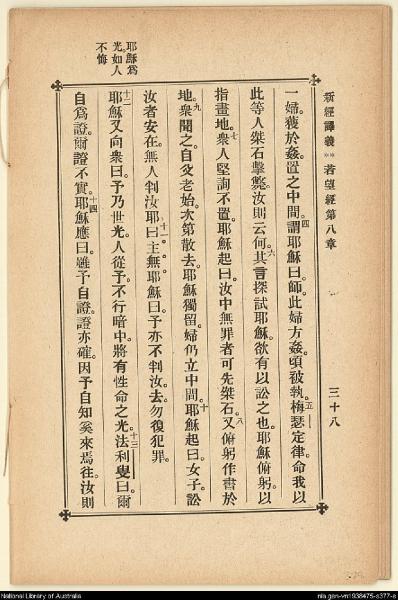 新經譯義 ** 若望經第八章 三十八
一婦。獲於姦。置之中間。四謂耶穌曰。師。此婦方姦。頃被執。五梅瑟定律。命我以
此等人桀石擊斃。汝則云何。六其言探試耶穌。欲有以訟之也。耶穌俯躬。以
指畫地。七衆人堅詢不置。耶穌起曰。汝中無罪者。可先桀石。八又俯躬作書於
地。九衆聞之。自父老始。次第散去。耶穌獨留。婦仍立中間。十耶穌起曰。女子。訟
汝者安在。無人判汝耶。十一曰。主。無。耶穌曰。予亦不判汝。去。勿復犯罪。
十二耶穌又向衆曰。予乃世光。人從予不行暗中。將有性命之光。十三法利叟曰。爾
自爲證。爾證不實。十四耶穌應曰。雖予自證。證亦確。因予自知奚來焉往。汝則
耶穌爲
光。如人
不悔
National Library of Australia
nla.gen-vn1938475-s377-e